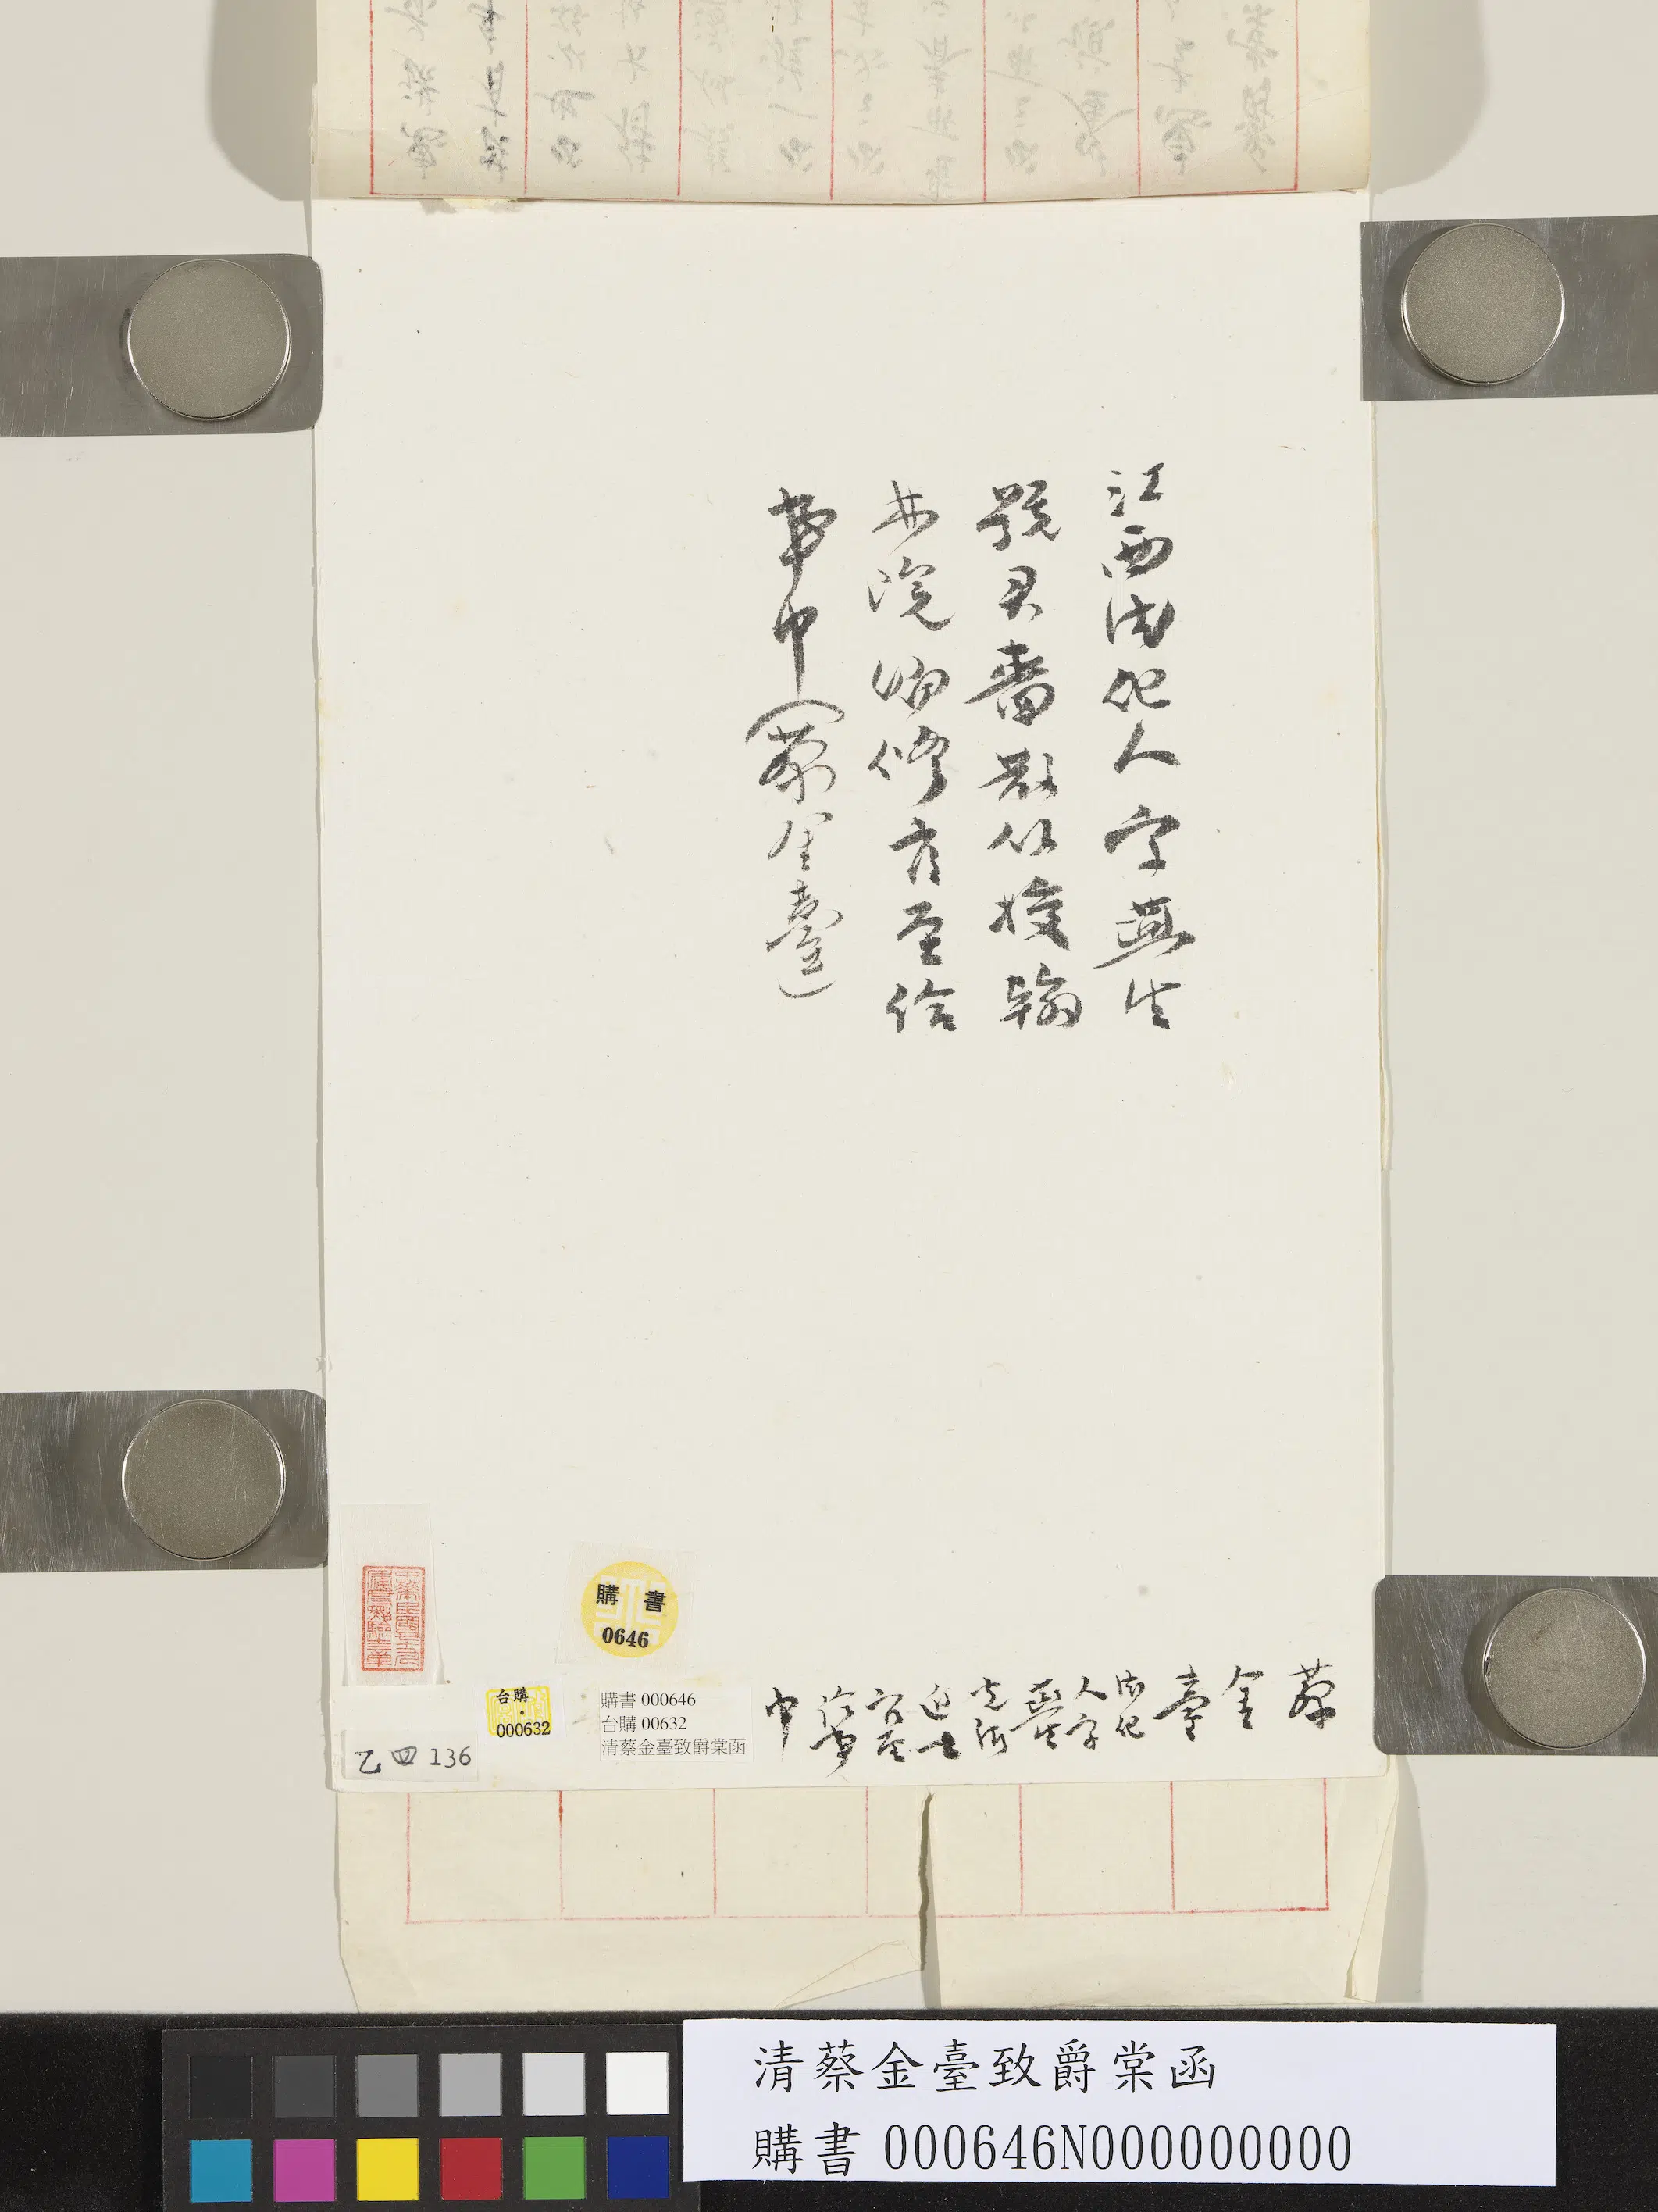 江西德化人字燕生
號君散授翰
林院編修官至給
事中(蔡金臺)
蔡金臺德化人字燕生光緒進士官至給事中
購書
0646
台購
000632
購書 000646
台購 00632
清蔡金臺致爵棠函
乙四136
清蔡金臺致爵棠函
購書 000646N000000000